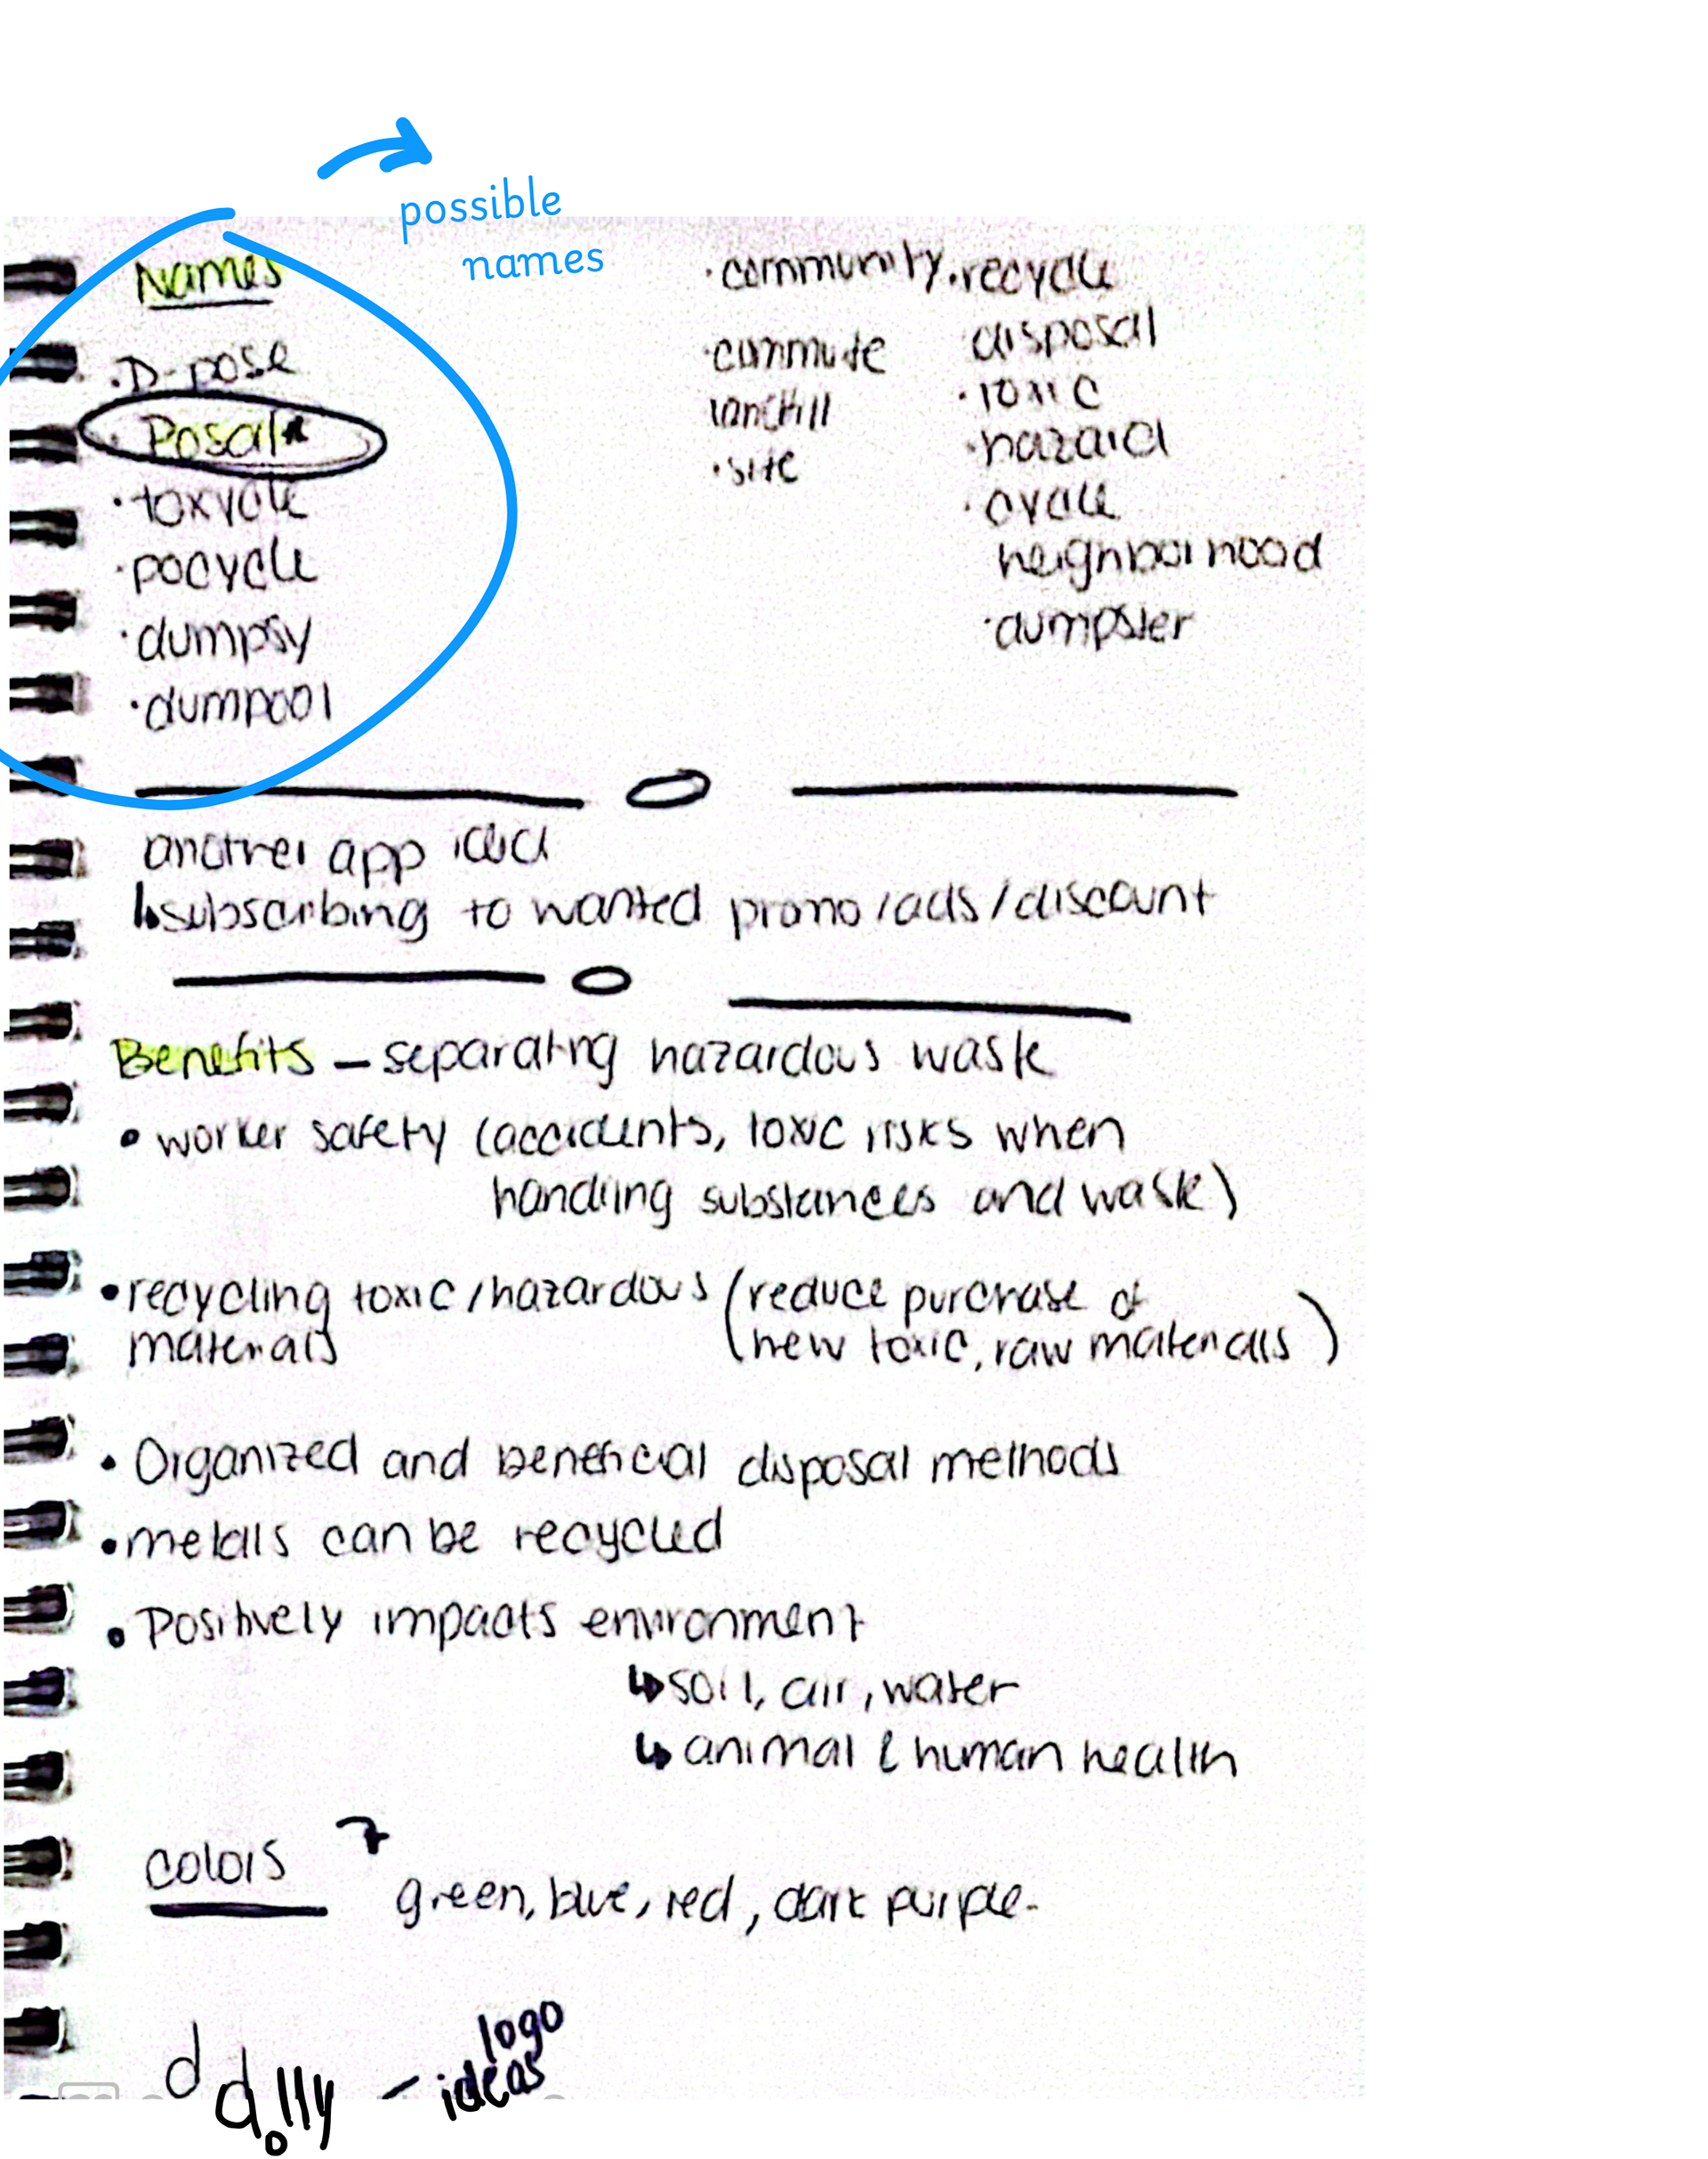 possible
names
Names
• D-pose
• Posal*
• toxycle
• pocycle
• dumpsy
• dumpool
• community
• commute
landfill
• site
• recycle
disposal
• toxic
• hazard
• cycle
neighborhood
• dumpster
another app idea
↳ subscribing to wanted promo/ads/discount
Benefits – separating hazardous waste
• worker safety (accidents, toxic risks when
handling substances and waste)
• recycling toxic/hazardous (reduce purchase of
materials new toxic, raw materials)
• Organized and beneficial disposal methods
• metals can be recycled
• Positively impacts environment
↳ soil, air, water
↳ animal & human health
colors
green, blue, red, dark purple.
d
dolly – logo
ideas